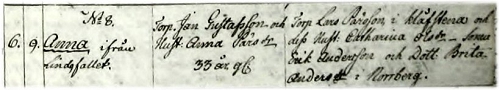 No 8.
6. 9. Anna ifrån
Lindsfallet.
Torp. Jan Gustafsson och
Hust. Anna Pärsdr
33 år gl.
Torp. Lars Pärsson i Kläffstena och
dess Hust. Catharina Olsdr – Sonen
Erik Andersson och Dott. Brita
Andersdr i Norrberg.